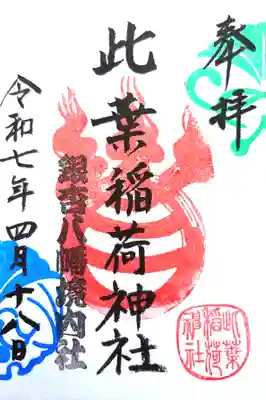 奉拝
此葉稲荷神社
銀杏八幡境内社
令和七年四月十八日
此葉
稲荷
神社